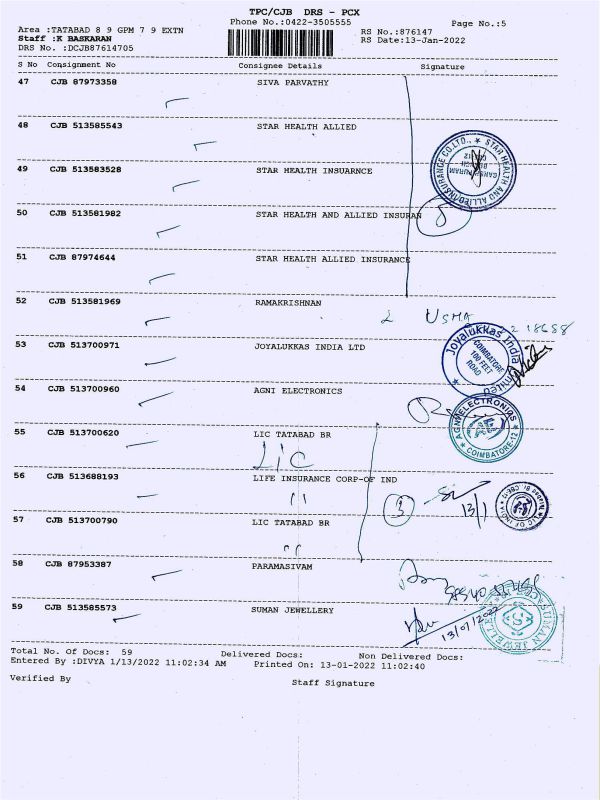 TPC/CJB DRS - PCX
Phone No.:0422-3505555
Page No.:5
Area :TATABAD 8 9 GPM 7 9 EXTN
RS No.:876147
Staff :K BASKARAN
RS Date:13-Jan-2022
DRS No. :DCJB87614705
S No Consignment No Consignee Details Signature
47 CJB 87973358 SIVA PARVATHY
48 CJB 513585543 STAR HEALTH ALLIED
49 CJB 513583528 STAR HEALTH INSUARNCE
STAR HEALTH AND ALLIED INSURANCE CO.LTD.,
50 CJB 513581982 STAR HEALTH AND ALLIED INSURAN
51 CJB 87974644 STAR HEALTH ALLIED INSURANCE
52 CJB 513581969 RAMAKRISHNAN
USHA
53 CJB 513700971 JOYALUKKAS INDIA LTD
Joyalukkas India Limited
COIMBATORE
100 FEET
ROAD
54 CJB 513700960 AGNI ELECTRONICS
AGNI ELECTRONICS
COIMBATORE-12
55 CJB 513700620 LIC TATABAD BR
LIC
56 CJB 513688193 LIFE INSURANCE CORP-OF IND
3
13/1
57 CJB 513700790 LIC TATABAD BR
58 CJB 87953387 PARAMASIVAM
59 CJB 513585573 SUMAN JEWELLERY
13/01/2022
Total No. Of Docs: 59 Delivered Docs: Non Delivered Docs:
Entered By :DIVYA 1/13/2022 11:02:34 AM Printed On: 13-01-2022 11:02:40
Verified By Staff Signature